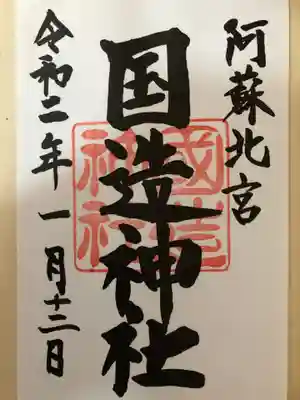 阿蘇北宮
国造神社
令和二年一月十二日
國造
神社